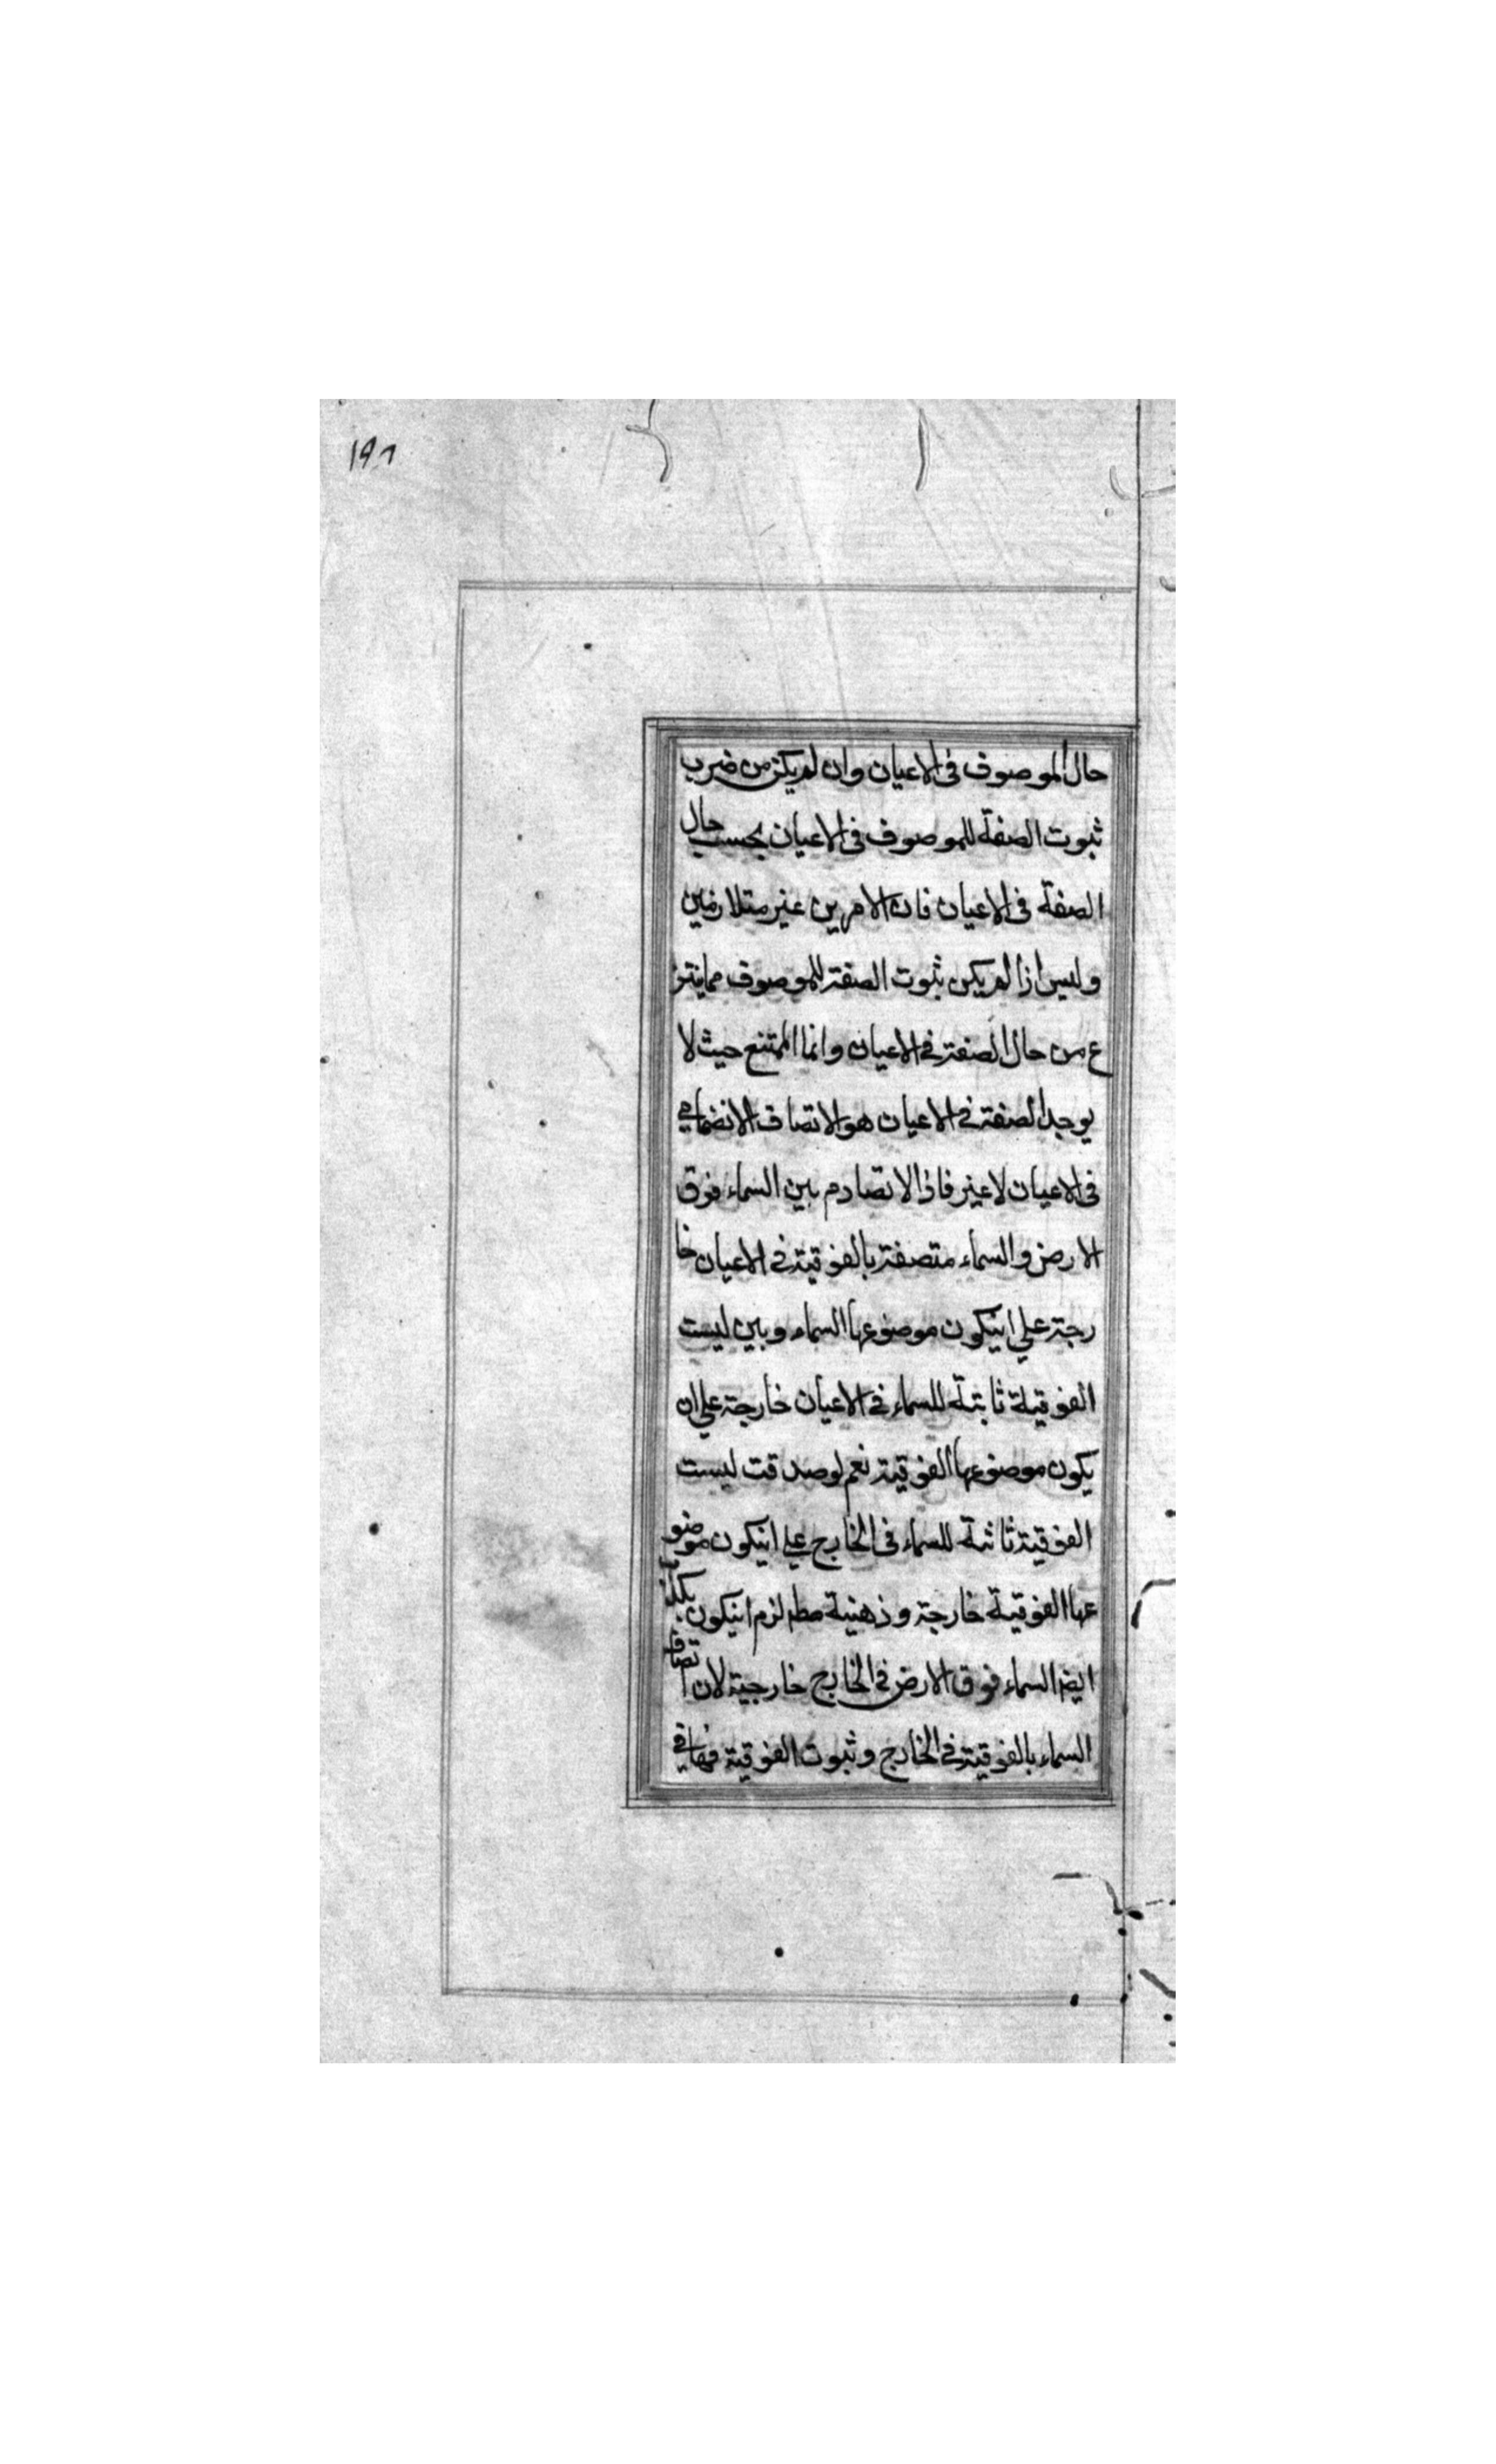 ١٩٨
حال الموصوف فى الاعيان وان لم يكن من ضرب
ثبوت الصفة للموصوف فى الاعيان بحسب حال
الصفة فى الاعيان فان الامرين غير متلازمين
وليس اذا لم يكن ثبوت الصفة للموصوف مماينتز
ع من حال الصفة فى الاعيان وانما الممتنع حيث لا
يوجد الصفة فى الاعيان هو الاتصاف الانضمامى
فى الاعيان لا غير فاذا لا تصادم بين السماء فوق
الارض والسماء متصفة بالفوقية فى الاعيان خا
رجة على انيكون موضوعها السماء وبين ليست
الفوقية ثابتة للسماء فى الاعيان خارجة على ان
يكون موضوعها الفوقية نعم لو صدقت ليست
الفوقية ثابتة للسماء فى الخارج على انيكون موضو
عها الفوقية خارجة وذهنية مط لزم انيكون
ايضا السماء فوق الارض فى الخارج خارجية لان اتصاف
السماء بالفوقية فى الخارج وثبوت الفوقية فى